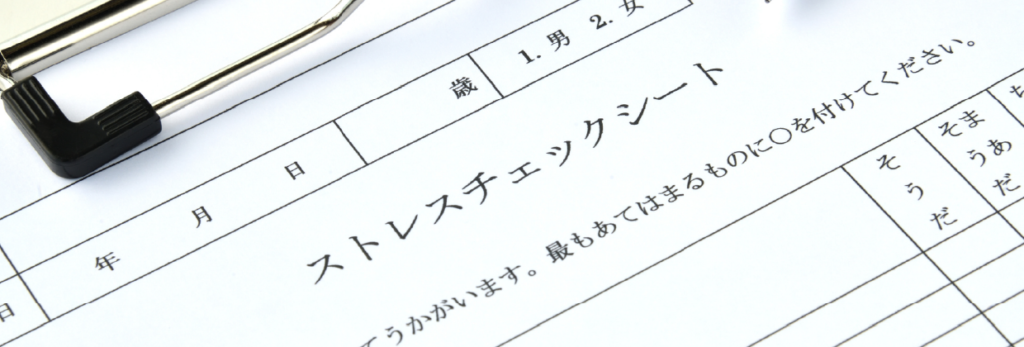 1. 男 2. 女
歳
年 月 日
日
ストレスチェックシート
てうかがいます。最もあてはまるものに○を付けてください。
そうだ
まあそうだ